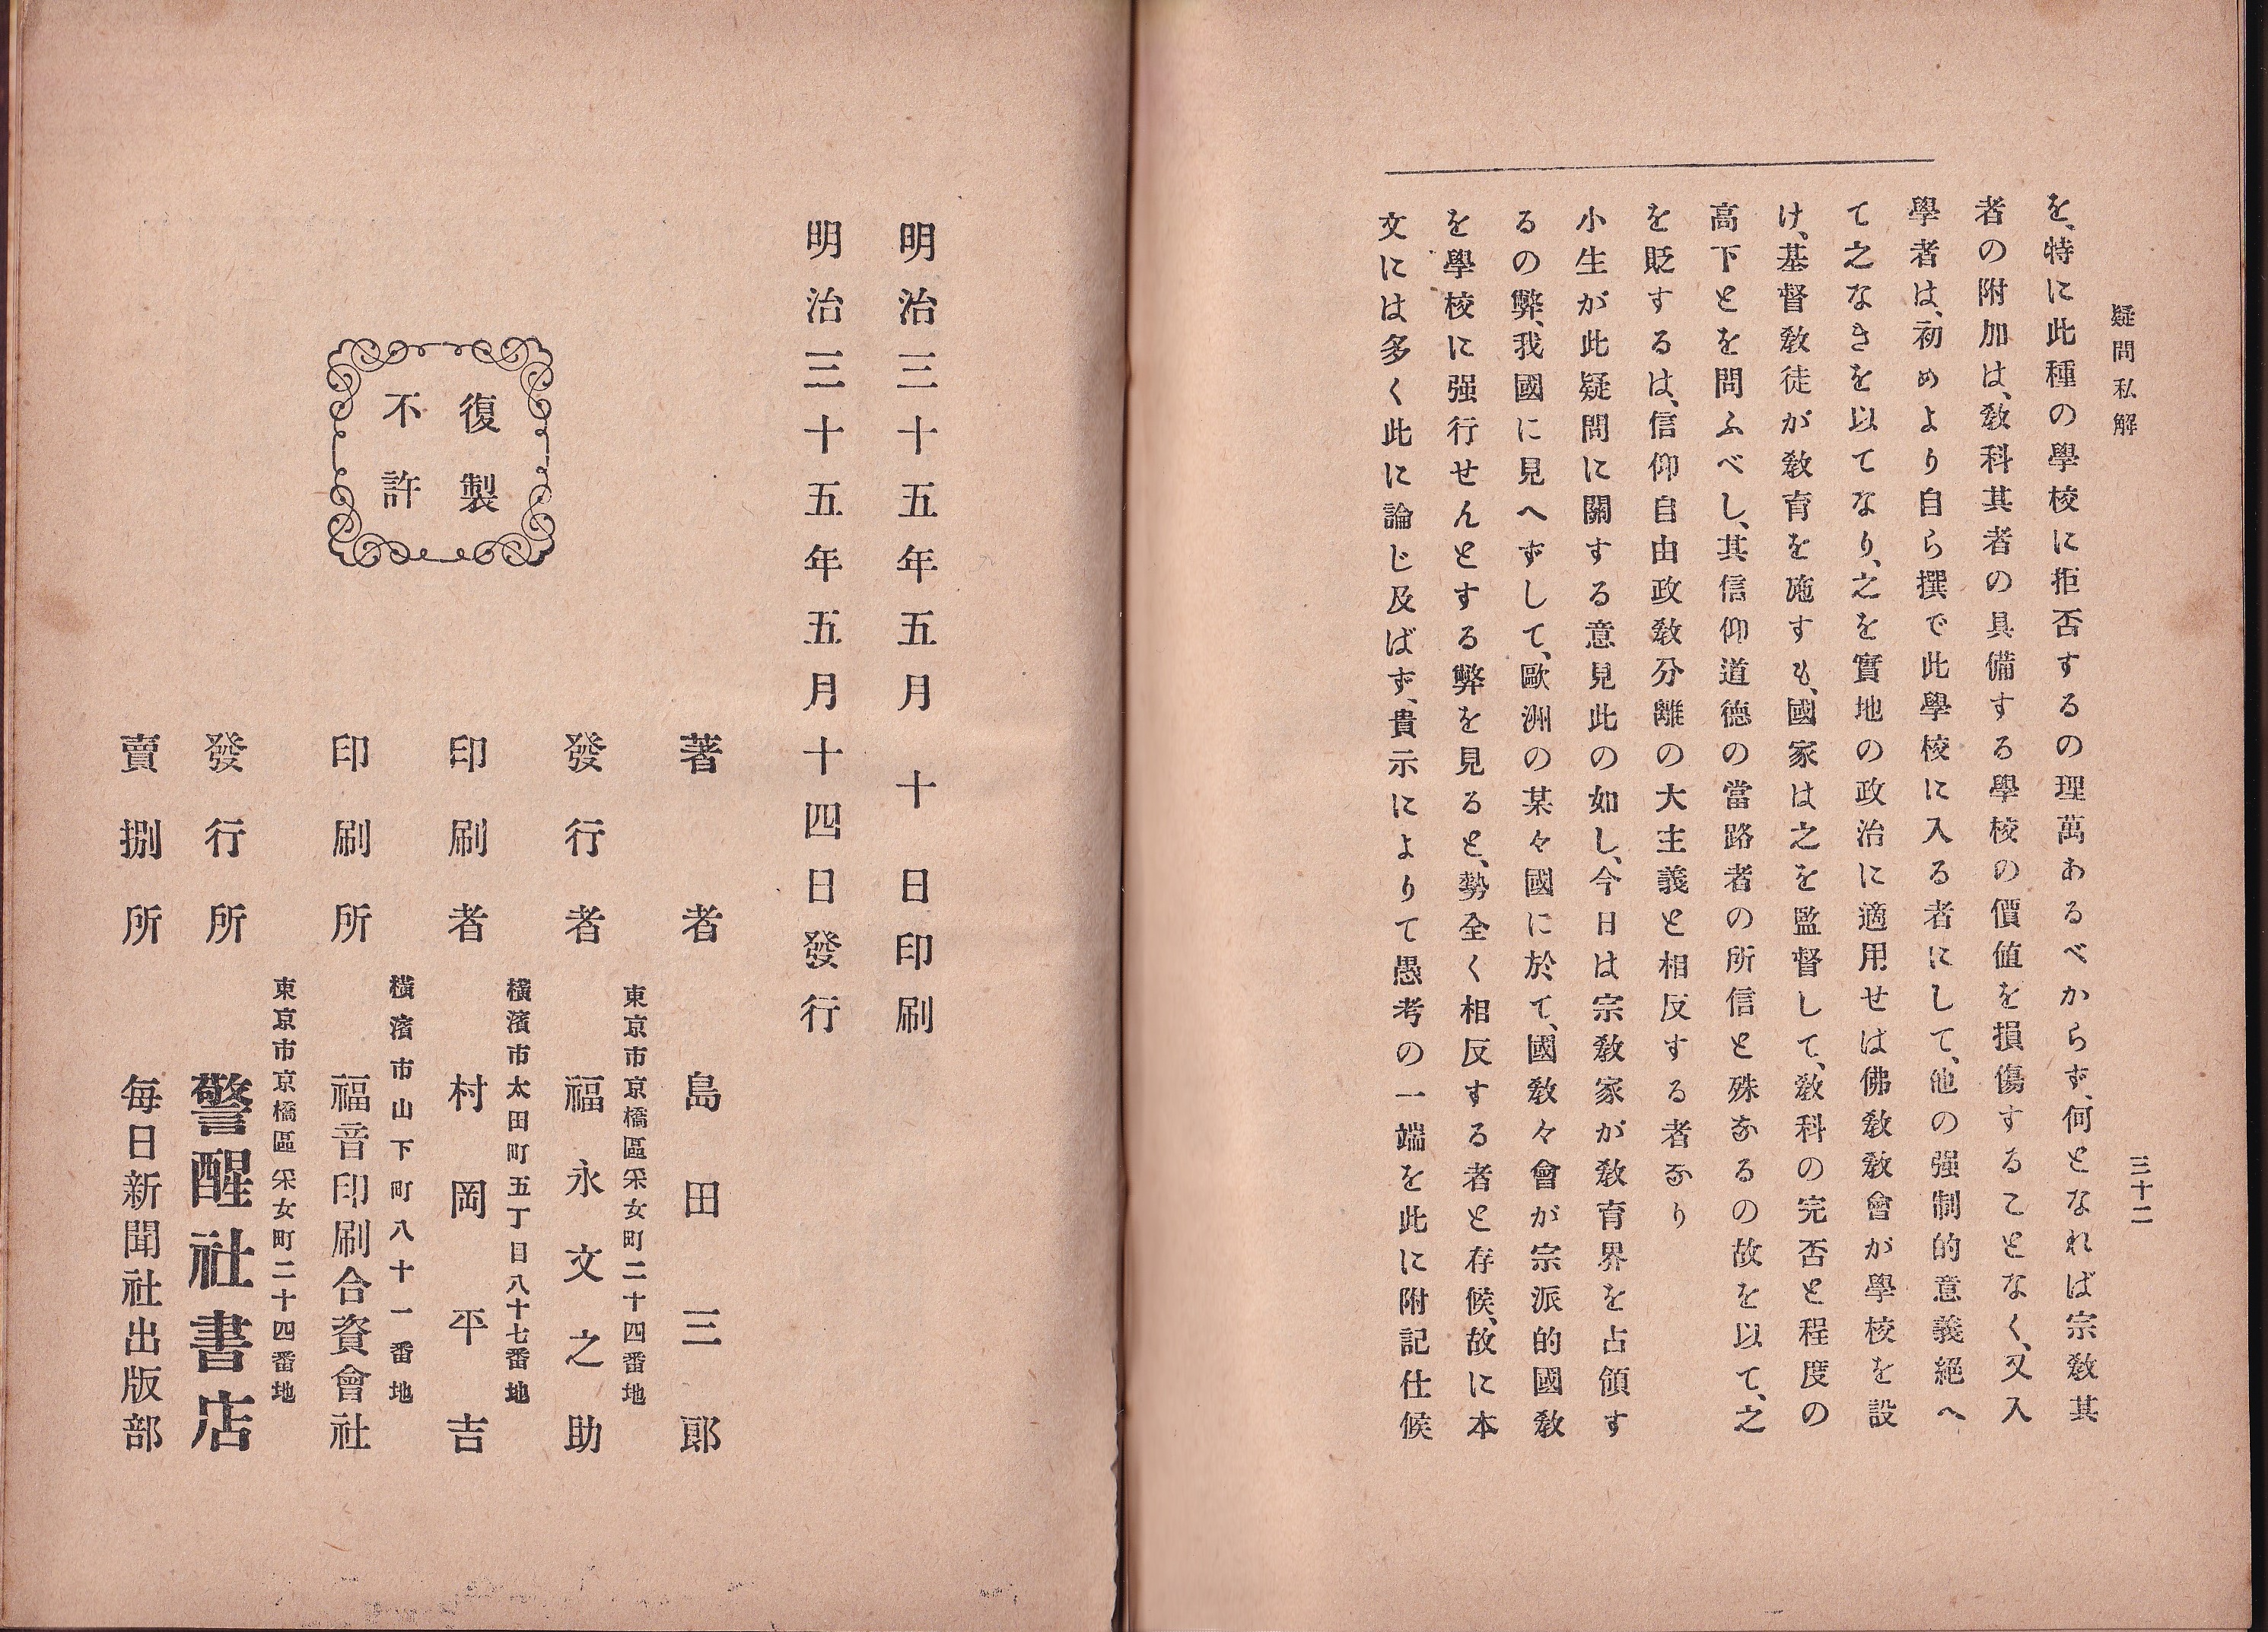 疑問私解
三十二
を、特に此種の學校に拒否するの理萬あるべからず、何となれば宗敎其
者の附加は、敎科其者の具備する學校の價値を損傷することなく、又入
學者は、初めより自ら撰で此學校に入る者にして、他の强制的意義絕へ
て之なきを以てなり、之を實地の政治に適用せは佛敎敎會が學校を設
け、基督敎徒が敎育を施すも、國家は之を監督して、敎科の完否と程度の
高下とを問ふべし、其信仰道德の當路者の所信と殊なるの故を以て、之
を貶するは、信仰自由政敎分離の大主義と相反する者なり
小生が此疑問に關する意見此の如し、今日は宗敎家が敎育界を占領す
るの弊、我國に見へずして、歐洲の某々國に於て、國敎々會が宗派的國敎
を學校に强行せんとする弊を見ると、勢全く相反する者と存候、故に本
文には多く此に論じ及ばず、貴示によりて愚考の一端を此に附記仕候
明治三十五年五月十日印刷
明治三十五年五月十四日發行
復製
不許
著者 島田三郎
東京市京橋區采女町二十四番地
發行者 福永文之助
橫濱市太田町五丁目八十七番地
印刷者 村岡平吉
橫濱市山下町八十一番地
印刷所 福音印刷合資會社
東京市京橋區采女町二十四番地
發行所 警醒社書店
賣捌所 每日新聞社出版部